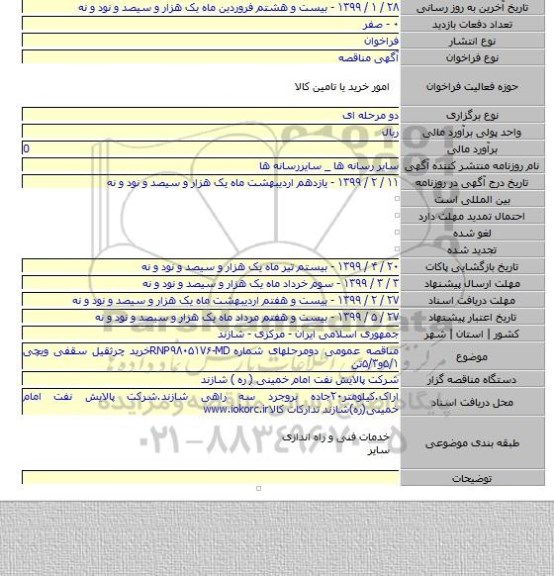 تاریخ آخرین به روز رسانی ۲۸ / ۱ / ۱۳۹۹ - بیست و هشتم فروردین ماه یک هزار و سیصد و نود و نه
تعداد دفعات بازدید ۰ - صفر
نوع انتشار فراخوان
نوع فراخوان آگهی مناقصه
حوزه فعالیت فراخوان امور خرید یا تامین کالا
نوع برگزاری دو مرحله ای
واحد پولی برآورد مالی ریال
برآورد مالی 0
نام روزنامه منتشر کننده آگهی سایر رسانه ها _ سایررسانه ها
تاریخ درج آگهی در روزنامه ۱۱ / ۲ / ۱۳۹۹ - یازدهم اردیبهشت ماه یک هزار و سیصد و نود و نه
بین المللی است
احتمال تمدید مهلت دارد
لغو شده
تجدید شده
تاریخ بازگشایی پاکات ۲۰ / ۴ / ۱۳۹۹ - بیستم تیر ماه یک هزار و سیصد و نود و نه
مهلت ارسال پیشنهاد ۳ / ۳ / ۱۳۹۹ - سوم خرداد ماه یک هزار و سیصد و نود و نه
مهلت دریافت اسناد ۲۷ / ۲ / ۱۳۹۹ - بیست و هفتم اردیبهشت ماه یک هزار و سیصد و نود و نه
تاریخ اعتبار پیشنهاد ۲۷ / ۵ / ۱۳۹۹ - بیست و هفتم مرداد ماه یک هزار و سیصد و نود و نه
کشور | استان | شهر جمهوری اسلامی ایران - مرکزی - شازند
موضوع مناقصه عمومی دومرحلهای شماره RNP۹۸۰۵۱۷۶-MDخرید جرثقیل سقفی ویچی
۵/۱و۵/۳تن
دستگاه مناقصه گزار شرکت پالایش نفت امام خمینی ( ره ) شازند
محل دریافت اسناد اراک.کیلومتر۲۰جاده بروجرد سه راهی شازند.شرکت پالایش نفت امام
خمینی(ره)شازند تدارکات کالاwww.iokorc.ir
طبقه بندی موضوعی خدمات فنی و راه اندازی
سایر
توضیحات
ParsNamadData
۰۲۱-۸۸۳۴۹۶۷۰-۵